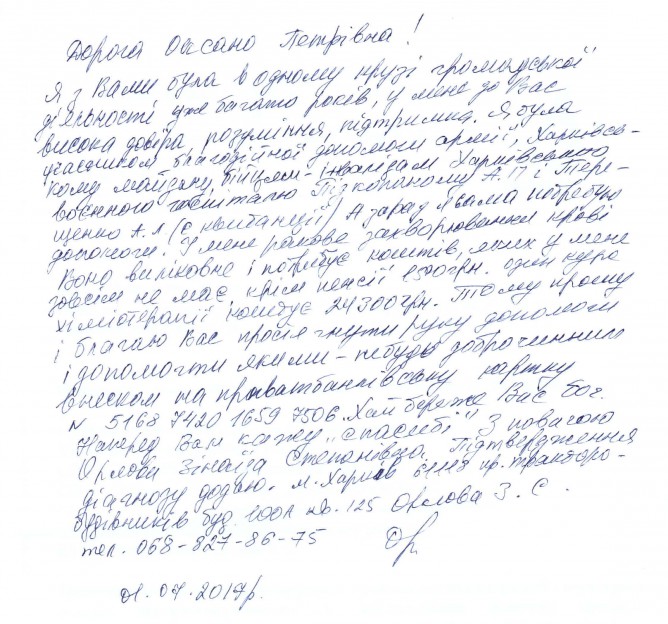 Дорога Оксано Петрівна!
Я з Вами була в одному крузі громадської
діяльності уже багато років, у мене до Вас
висока довіра, розуміння, підтримка. Я була
учасником благодійної допомоги армії, Харківсь-
кому майдану, бійцям-інвалідам Харківського
военного госпіталю Підкопаному А.П і Тере-
щенко А.Л (є квитанції) А зараз я сама потребую
допомоги. У мене ракове захворювання крові
Воно виліковне і потребує коштів, яких у мене
зовсім не має, крім пенсії 1500грн. один курс
хіміотерапії коштує 24300грн. Тому прошу
і благаю Вас простягнути руку допомоги
і допомогти якими-небудь доброчинним
внеском на приватбанківську картку
N 5168 7420 1659 7506. Хай береже Вас бог.
Наперед Вам кажу "спасибі" З повагою
Орлова Зінаїда Степанівна. Підтвердження
діагнозу додаю. м. Харків пр. Тракторо-
будівників буд. 100А кв. 125 Орлова З. С.
тел. 068-827-86-75
01.07.2017р.